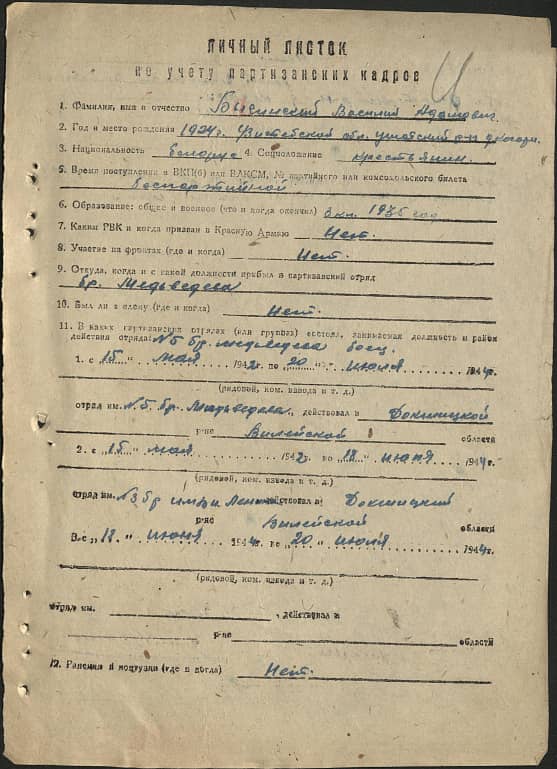 ЛИЧНЫЙ ЛИСТОК
по учету партизанских кадров
1. Фамилия, имя и отчество Василий Адамович.
2. Год и место рождения 1924 г. Витебской обл. ушатский р-н
3. Национальность белорус 4. Соцположение крестьянин.
5. Время поступления в ВКП(б) или ВЛКСМ, № партийного или комсомольского билета
беспартийной
6. Образование: общее и военное (что и когда окончил) 3 кл. 1936 год
7. Каким РВК и когда призван в Красную Армию Нет.
8. Участие на фронтах (где и когда) Нет.
9. Откуда, когда и с какой должности прибыл в партизанский отряд
бр. Медьведева
10. Был ли в плену (где и когда) Нет.
11. В каких партизанских отрядах (или группах) состоял, занимаемая должность и район
действия отряда: №5 бр. медьведева боец.
1. с „15" мая 1942 г. по „20" июля 1944 г.
(рядовой, ком. взвода и т. д.)
отряд им. №5. бр. Медьведева, действовал в Докшицкой
р-не Вилейской области
2. с „15" мая 1942 г. по „18" июня 1944 г.
(рядовой, ком. взвода и т. д.)
отряд им. №3 бр имени Ленина действовал в Докшицкий
р-не Вилейской области
3. с „18" июня 1944 г. по „20" июля 1944 г.
(рядовой, ком. взвода и т. д.)
отряд им. , действовал в
р-не области
12. Ранения и контузии (где и когда) Нет.